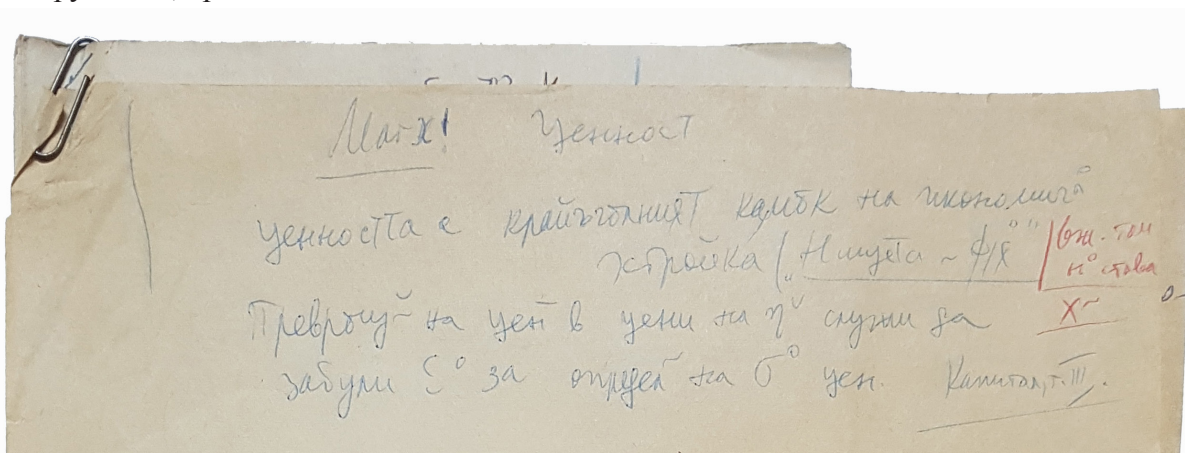 Маrх! Ценност
Ценността е крайъгълният камък на икономич
стройка ("Нищета ~ ф/х°"
вж. том
н° става
х~
Превръщ~ на цен в цени на η служи да
забули ξ° за опредеł на σ° цен. Капитал, т. III.